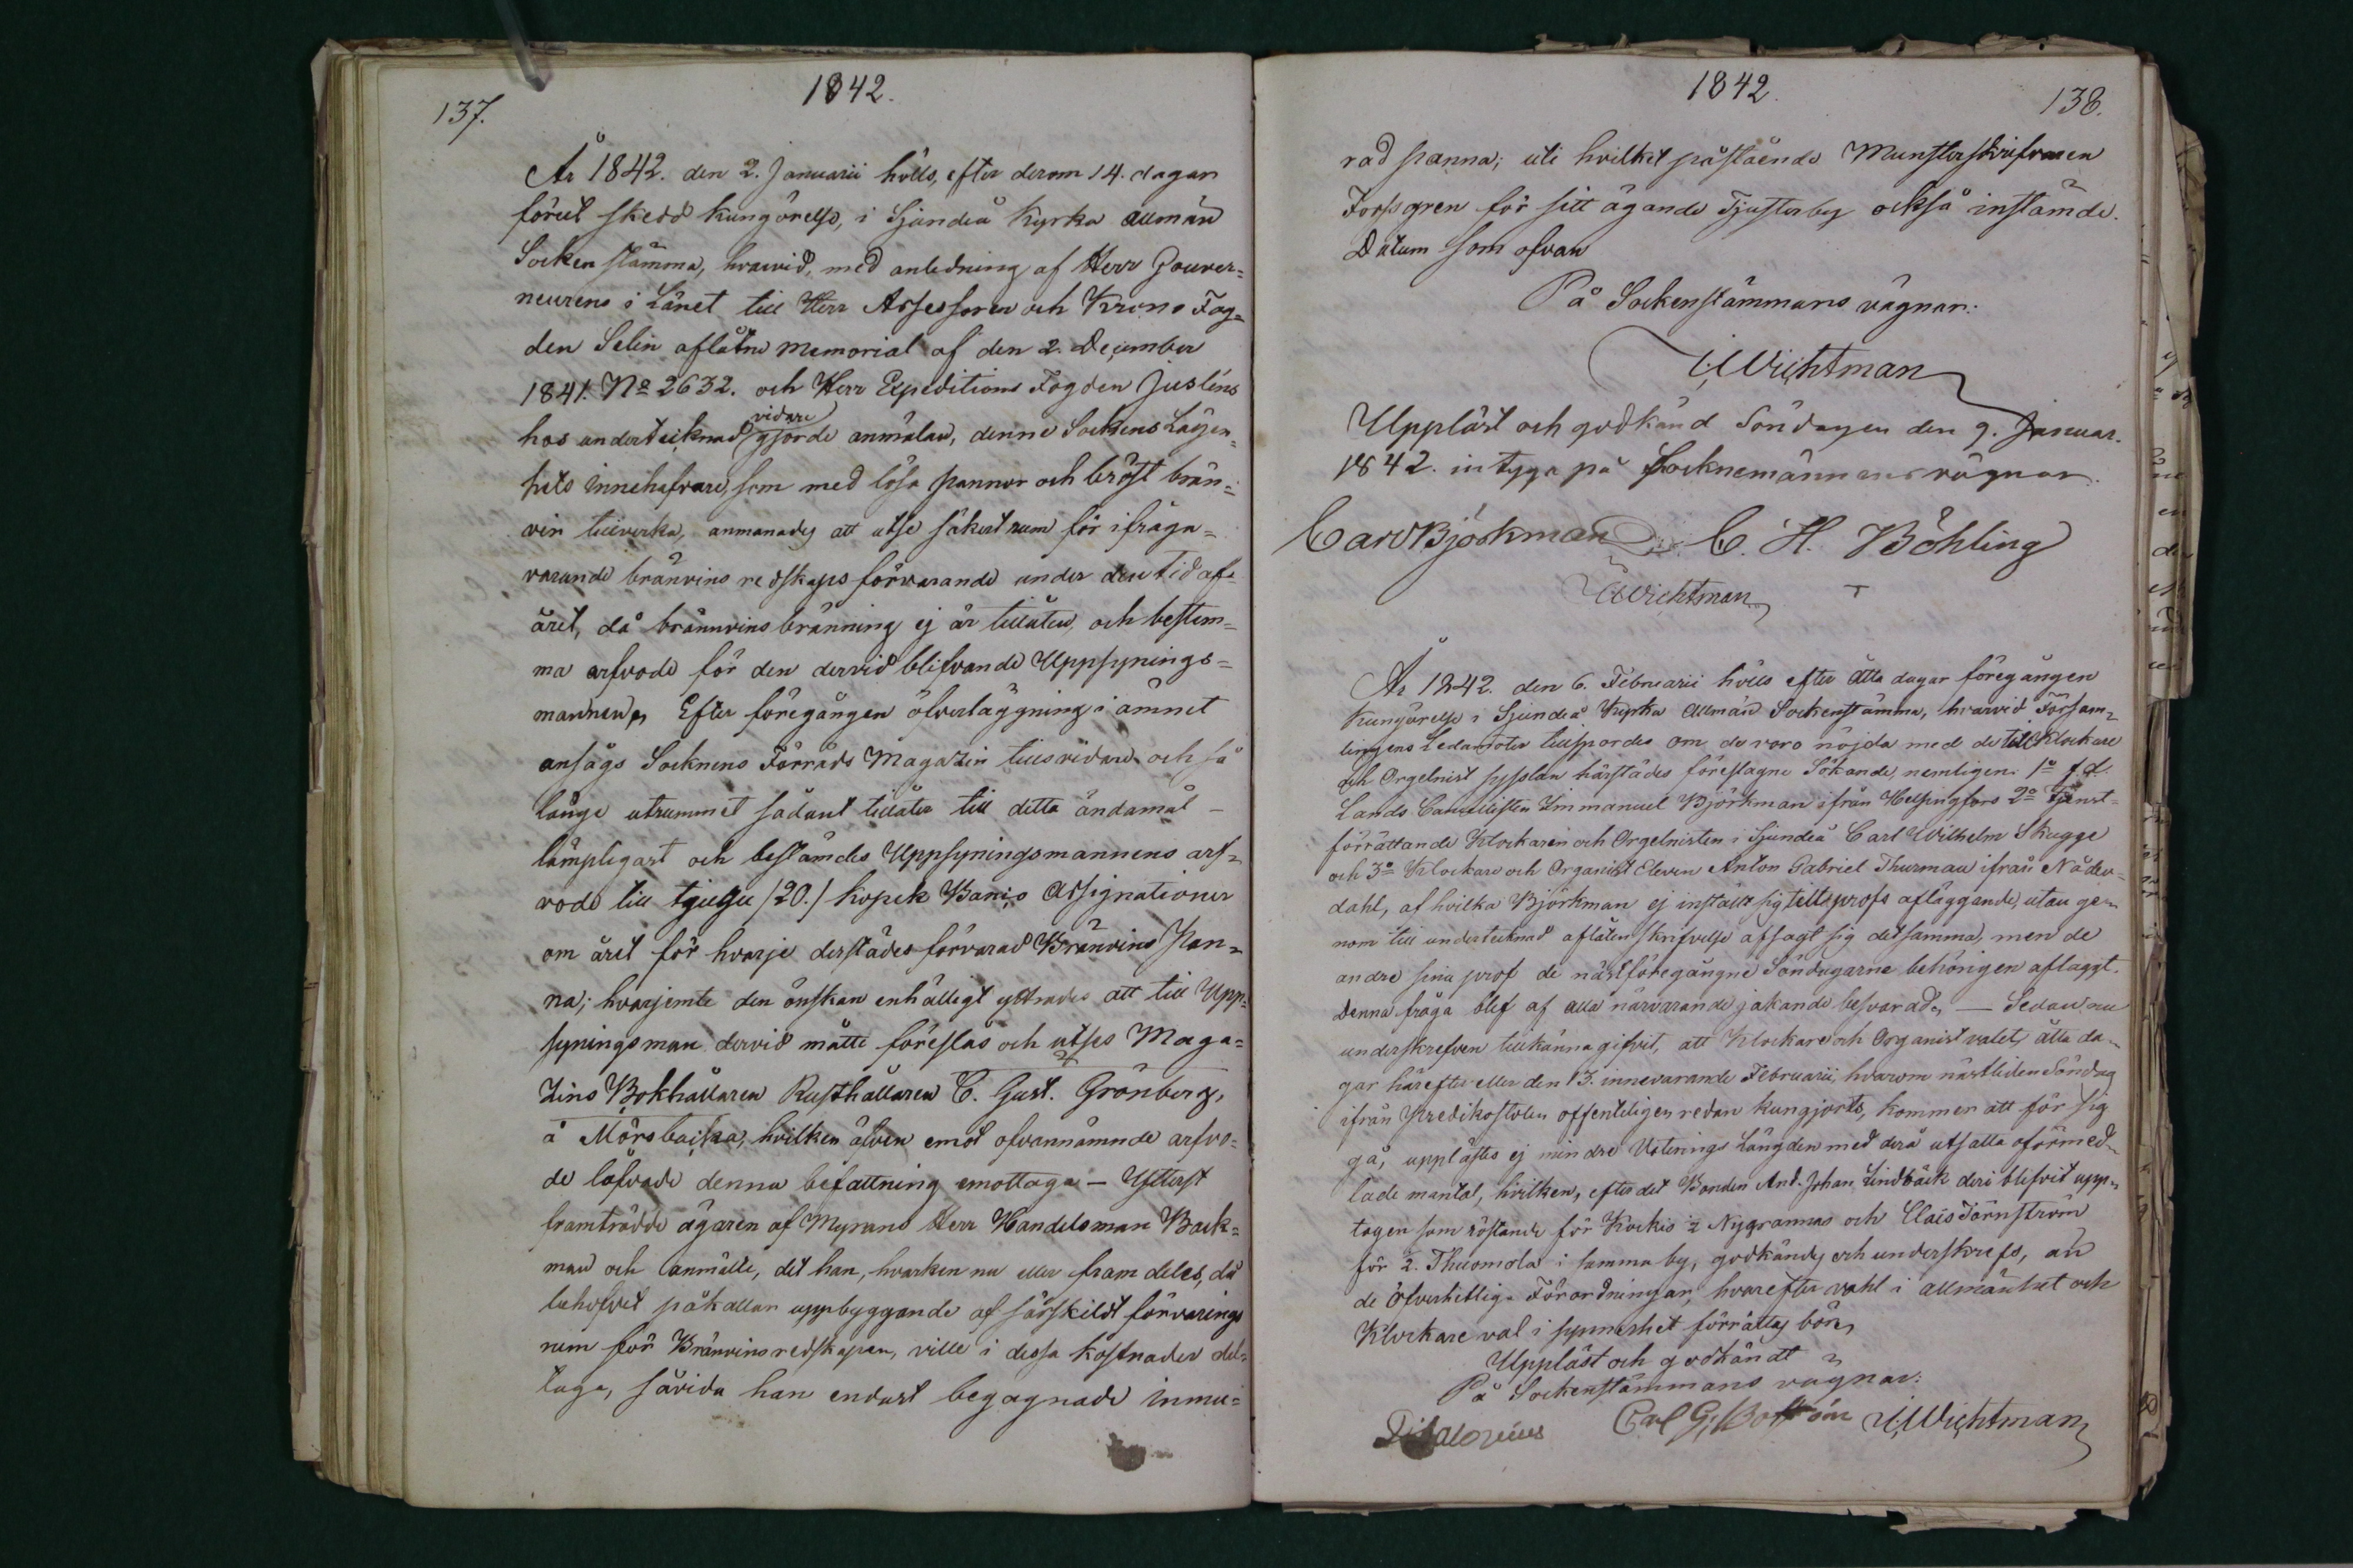 1842.
137.
År 1842. den 2. Januarii hölls, efter derom 14. dagar
förut skedd kungörelse, i Sjundeå Kyrka allmän
Sockenstämma, hvarvid, med anledning af Herr Gouver=
neurens i Länet till Herr Assessoren och Krono Fog=
den Selin aflåtne Memorial af den 2. December
1841. No 2632. och Herr Expeditions Fogden Juslins
vidare
hos undertecknad gjorde anmälan, denne Sockens Lägen=
hets innehafvare, som med lösa pannor och bröst brän=
vin tillverka, anmanades att utse säkert rum för ifråga=
varande bränvins redskaps förvarande under den tid af
året, då brännvins bränning ej är tillåten, och bestäm=
ma arfvode för den dervid blifvande Uppsynings=
mannen. Efter föregången öfverläggning i ämnet
ansågs Socknens Förråds Magazin tillsvidare och så
länge utrummet sådant tillåter till detta ändamål
lämpligast och bestämdes Uppsyningsmannens arf=
vode till tjugu /20./ kopek Banco Assignationer
om året för hvarje derstädes förvarad Bränvins Pan=
na; hvarjemte den önskan enhälligt yttrades att till Upp=
syningsman dervid måtte föreslås och utses Maga=
zins Bokhållaren Rusthållaren C. Gust. Grönberg,
å Mörsbacka, hvilken äfven emot ofvannämnde arfvo=
de lofvade denna befattning emottaga – Ytterst
framträdde ägaren af Myrans Herr Handelsman Back=
man och anmälte, det han, hvarken nu eller framdeles, då
behofvet påkallar uppbyggande af särskildt förvarings
rum för Bränvinsredskapen, ville i dessa kostnader del=
taga, såvida han endast begagnade inmu=
1842.
138.
rad panna; uti hvilket påstående Munsterskrifvaren
Forssgren för sitt ägande Tjusterby också instämde.
Datum som ofvan
På Sockenstämmans vägnar:
Wichtman
Uppläst och godkänd Söndagen den 9. Januar.
1842. intyga på Socknemännens vägnar.
Carl Björkman C. H. Böhling
Wichtman
År 1842. den 6. Februarii hölls efter åtta dagar föregången
Kungörelse i Sjundeå Kyrka Allmän Sockenstämma, hvarvid Försam=
lingens Ledamöter tillspordes om de voro nöjda med de till Klockare
och Orgelnist sysslan härstädes föreslagne Sökande, nemligen: 1o f.d.
Lands Cancellisten Immanuel Björkman ifrån Helsingfors 2o Tjenst=
förrättande Klockaren och Orgelnisten i Sjundeå Carl Wilhelm Skugge
och 3o Klockare och Organist Eleven Anton Gabriel Thurman ifrån Nåden=
dahl, af hvilka Björkman ej inställt sig till profs afläggande, utan ge=
nom till undertecknad aflåten skrifvelse afsagt sig detsamma, men de
andre sina prof de nästföregångne Söndagarne behörigen aflaggt.
Denna fråga blef af alla närvarande jakande besvarad, — Sedan nu
underskrefven tillkännagifvit, att Klockare och Organist valet, åtta da=
gar härefter eller den 13. innevarande Februarii, hvarom nästliden Söndag
ifrån Predikostolen offenteligen redan kungjorts, kommer att för sig
gå, upplästes ej mindre Voterings Längden med derå utsatta oförmed=
lade mantal, hvilken, efter det Bonden And. Johan Lindbäck deri blifvit upp=
tagen som röstande för Kockis 1/2 Nygrannas och Clais Törnström
för 1/2. Thuomola i samma by, godkändes och underskrefs, än
de Öfverhetliga Förordningar, hvarefter vahl i allmänhet och
Klockare val i synnerhet förrättas bör,
Uppläst och godkändt
På Sockenstämmans vägnar:
Carl G. Boström Wichtman